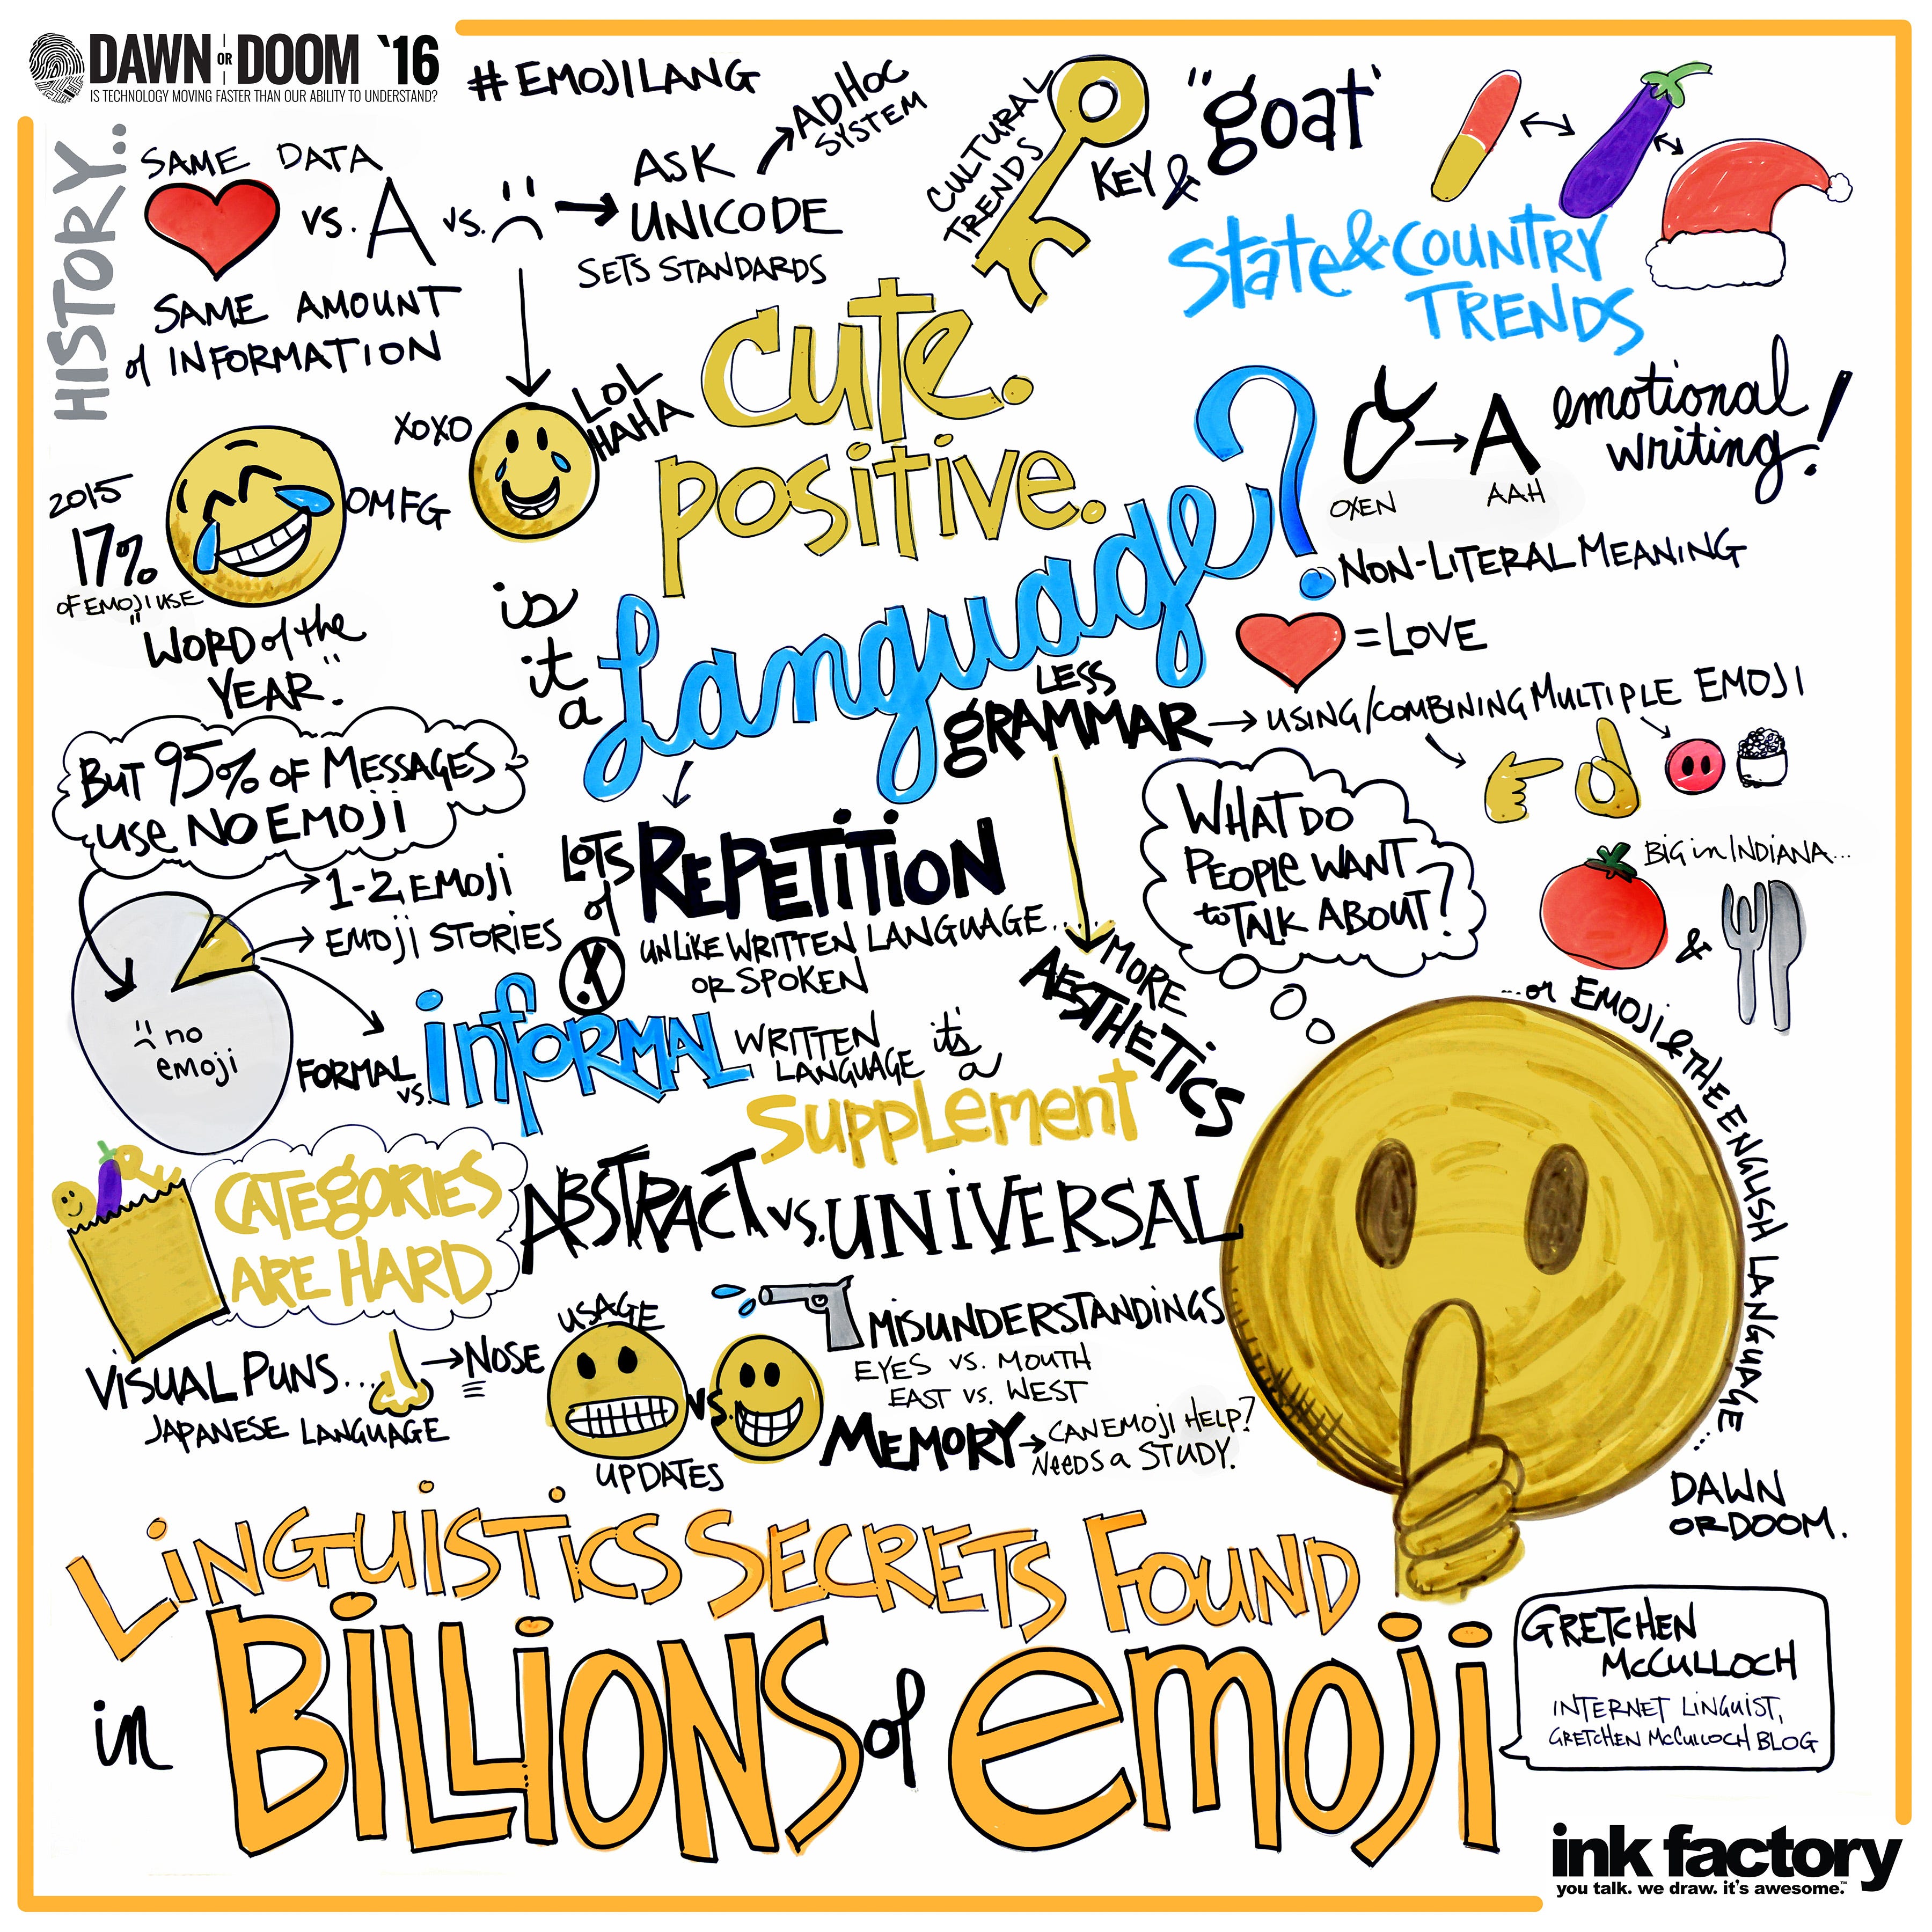 DAWN OR DOOM '16
IS TECHNOLOGY MOVING FASTER THAN OUR ABILITY TO UNDERSTAND?
#EMOJILANG
HISTORY..
SAME DATA
vs. A vs.
SAME AMOUNT
of INFORMATION
ASK
UNICODE
SETS STANDARDS
AD HOC
SYSTEM
CULTURAL
TRENDS
KEY &
"goat'
State & COUNTRY
TRENDS
cute.
positive.
XOXO
LOL
HAHA
OMFG
2015
17%
OF EMOJI USE
"WORD of the
YEAR."
is
it
a
Language?
OXEN
A
AAH
emotional
writing!
NON-LITERAL MEANING
= LOVE
LESS
GRAMMAR
USING/COMBINING MULTIPLE EMOJI
BUT 95% OF MESSAGES
use NO EMOJI
1-2 EMOJI
EMOJI STORIES
no
emoji
LOTS
of
REPETITION
UNLIKE WRITTEN LANGUAGE....
OR SPOKEN
MORE
AESTHETICS
WHAT DO
PEOPLE WANT
to TALK ABOUT?
BIG in INDIANA...
&
...or EMOJI & THE ENGLISH LANGUAGE...
FORMAL
vs.
informal
WRITTEN
LANGUAGE
it's
a
SUPPLEMENT
CATEGORIES
ARE HARD
ABSTRACT vs. UNIVERSAL
VISUAL PUNS...
NOSE
JAPANESE LANGUAGE
USAGE
VS.
UPDATES
MISUNDERSTANDINGS
EYES vs. MOUTH
EAST vs. WEST
MEMORY
CAN EMOJI HELP?
NEEDS a STUDY.
DAWN
OR DOOM.
LINGUISTICS SECRETS FOUND
in BILLIONS of emoji
GRETCHEN
McCULLOCH
INTERNET LINGUIST,
GRETCHEN McCULLOCH BLOG
ink factory
you talk. we draw. it's awesome.™